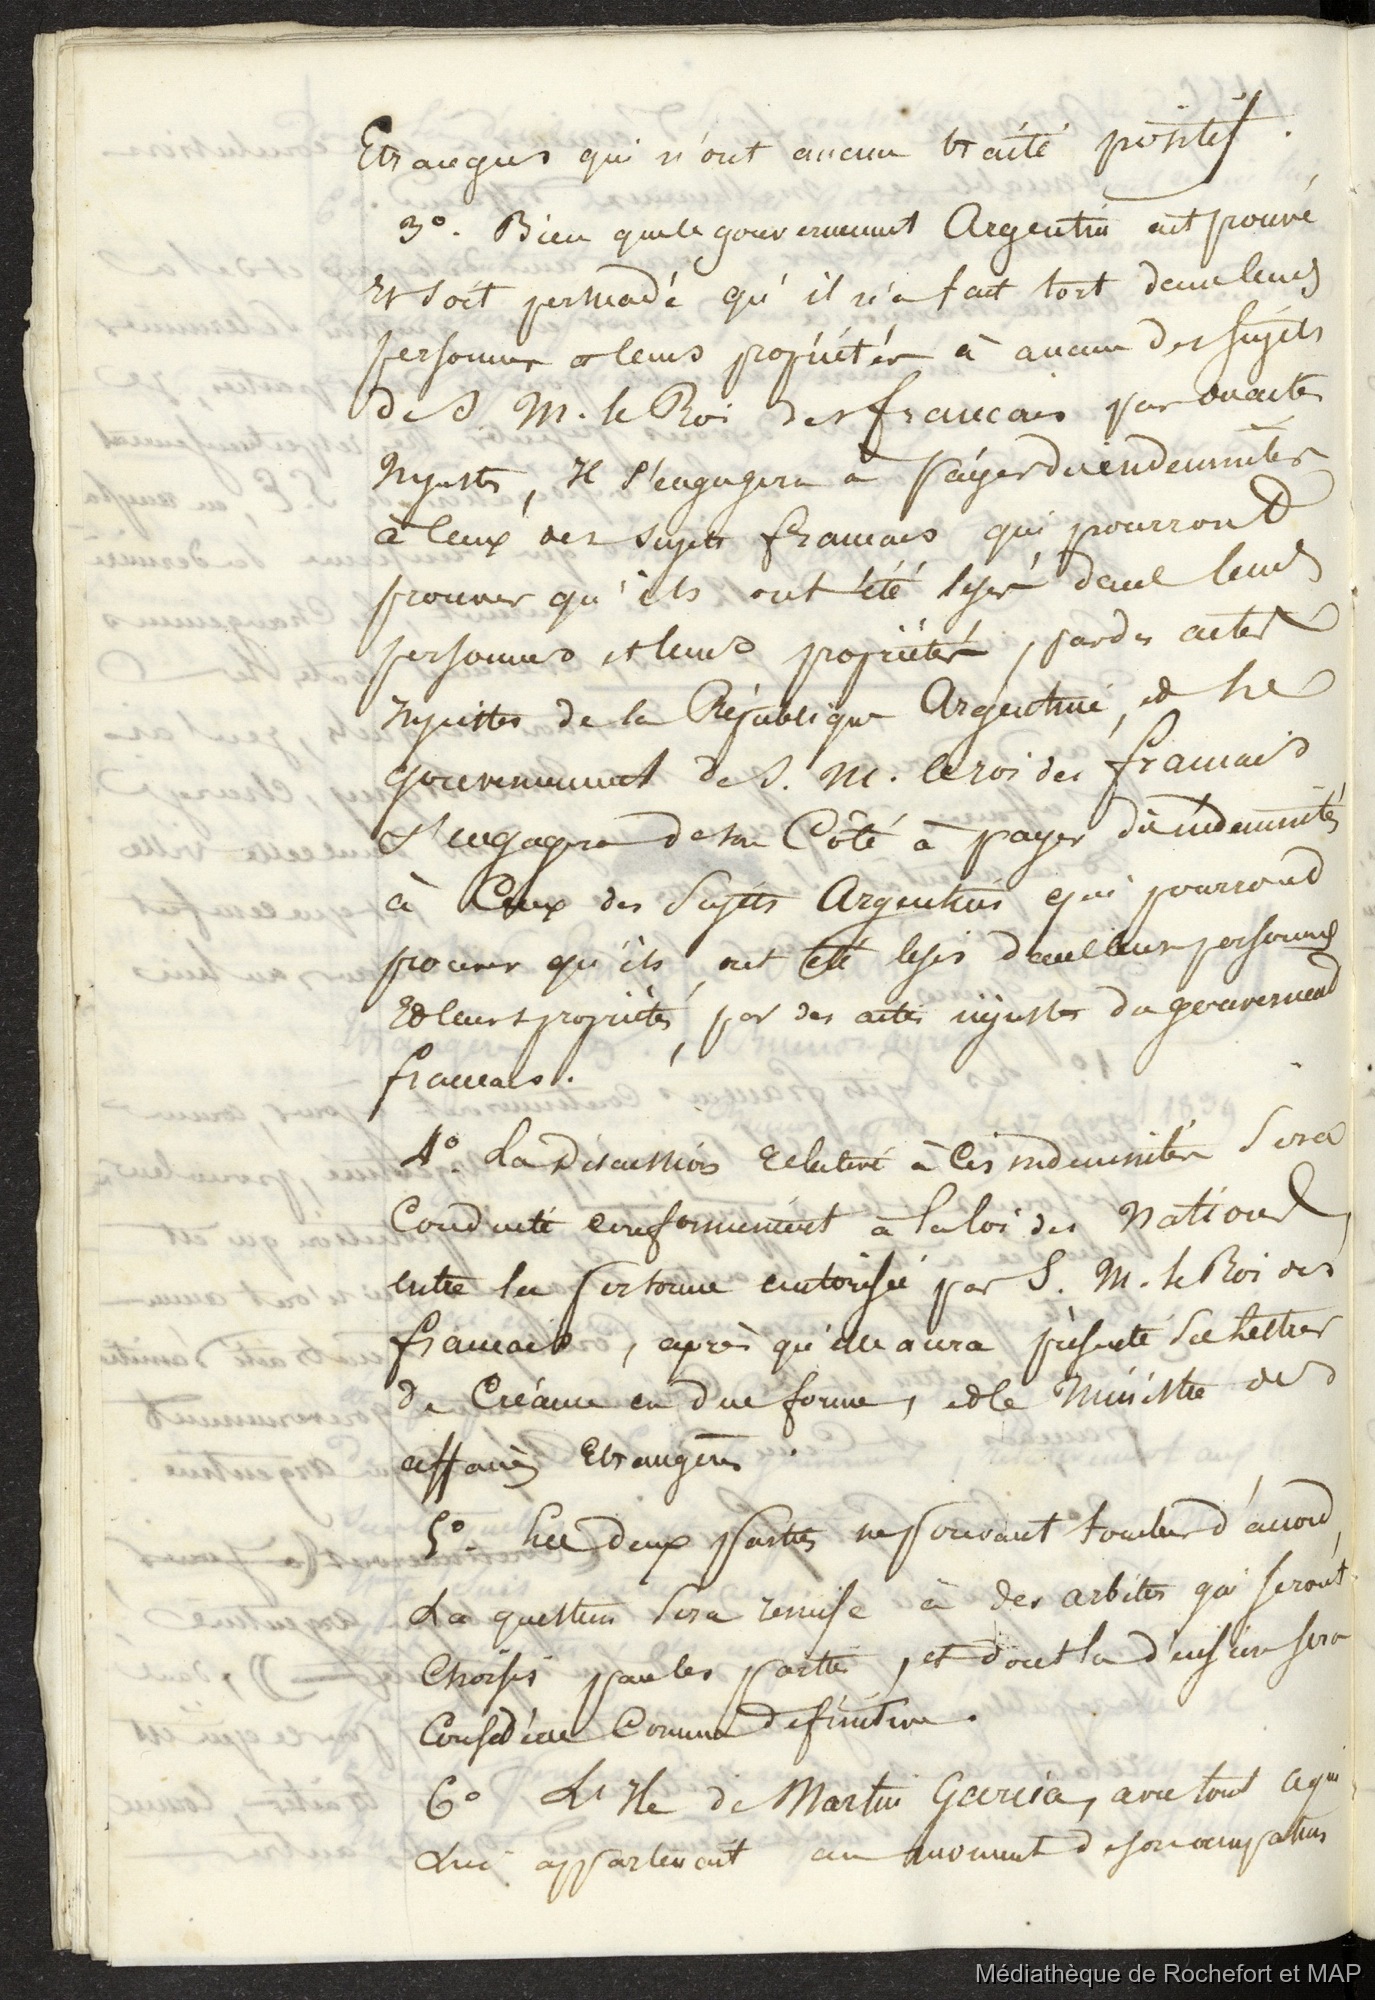 Etrangers qui n'ont aucun traité positif.
3°. Bien que le gouvernement Argentin ait prouvé
et soit persuadé qu'il n'a fait tort dans leurs
personnes et leurs propriétés à aucun des sujets
de S. M. le Roi des français par
injustes, Il s'engagera à payer des indemnités
à ceux des sujets français qui pourront
prouver qu'ils ont été lésés dans leurs
personnes et leurs propriétés, par des actes
injustes de la République Argentine, et le
gouvernement de S. M. le roi des français
s'engagera de son Côté à payer des indemnités
à Ceux des Sujets Argentins qui pourront
prouver qu'ils ont été lésés dans leurs personnes
Et leurs propriétés, par des actes injustes du gouvernement
français.
4°. La discussion relative à ces indemnités sera
Conduite conformément à la loi des Nations,
entre la personne autorisée par S. M. le Roi des
français, après qu'elle aura présenté ses lettres
de Créance en due forme, et le Ministre des
affaires Etrangères.
5°. Les deux parties ne pouvant tomber d'accord,
La question sera remise à des arbitres qui seront
Choisis par les parties, et dont la décision sera
Considérée Comme définitive.
6° L'Ile de Martin Garcia, avec tout ce qui
Lui appartenait au moment de son occupation
Médiathèque de Rochefort et MAP